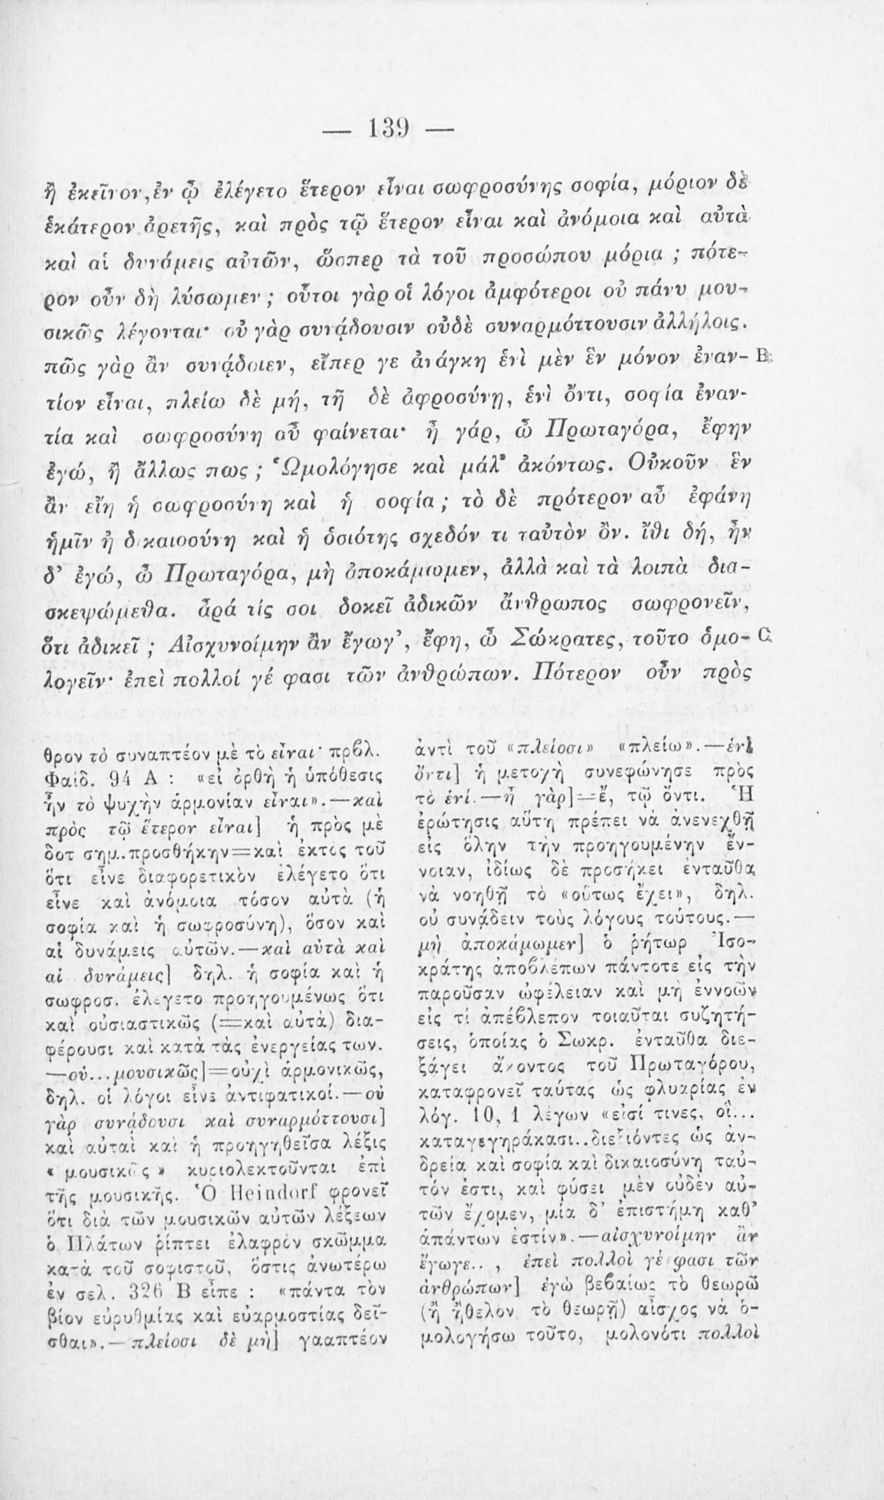 — 139 —
ἢ ἐκεῖνον, ἐν ᾧ ἐλέγετο ἕτερον εἶναι σωφροσύνης σοφία, μόριον δὲ
ἑκάτερον ἀρετῆς, καὶ πρὸς τῷ ἕτερον εἶναι καὶ ἀνόμοια καὶ αὐτὰ
καὶ αἱ δυνάμεις αὐτῶν, ὥσπερ τὰ τοῦ προσώπου μόρια ; πότε-
ρον οὖν δὴ λύσωμεν ; οὗτοι γὰρ οἱ λόγοι ἀμφότεροι οὐ πάνυ μου-
σικῶς λέγονται· οὐ γὰρ συνᾴδουσιν οὐδὲ συναρμόττουσιν ἀλλήλοις.
πῶς γὰρ ἂν συνᾴδοιεν, εἴπερ γε ἀνάγκη ἑνὶ μὲν ἓν μόνον ἐναν- B
τίον εἶναι, πλείω δὲ μή, τῇ δὲ ἀφροσύνῃ, ἑνὶ ὄντι, σοφία ἐναν-
τία καὶ σωφροσύνη αὖ φαίνεται· ἦ γάρ, ὦ Πρωταγόρα, ἔφην
ἐγώ, ἢ ἄλλως πως ; Ὡμολόγησε καὶ μάλ' ἀκόντως. Οὐκοῦν ἓν
ἂν εἴη ἡ σωφροσύνη καὶ ἡ σοφία ; τὸ δὲ πρότερον αὖ ἐφάνη
ἡμῖν ἡ δικαιοσύνη καὶ ἡ ὁσιότης σχεδόν τι ταὐτὸν ὄν. ἴθι δή, ἦν
δ' ἐγώ, ὦ Πρωταγόρα, μὴ ἀποκάμωμεν, ἀλλὰ καὶ τὰ λοιπὰ δια-
σκεψώμεθα. ἆρά τίς σοι δοκεῖ ἀδικῶν ἄνθρωπος σωφρονεῖν,
ὅτι ἀδικεῖ ; Αἰσχυνοίμην ἂν ἔγωγ', ἔφη, ὦ Σώκρατες, τοῦτο ὁμο- C
λογεῖν· ἐπεὶ πολλοί γέ φασι τῶν ἀνθρώπων. Πότερον οὖν πρὸς
θρον τὸ συναπτέον μὲ τὸ εἶναι· πρβλ.
Φαίδ. 94 Α : «εἰ ὀρθὴ ἡ ὑπόθεσις
ἦν τὸ ψυχὴν ἁρμονίαν εἶναι».—καὶ
πρὸς τῷ ἕτερον εἶναι] ἡ πρὸς μὲ
δοτ σημ. προσθήκην=καὶ ἐκτὸς τοῦ
ὅτι εἶνε διαφορετικὸν ἐλέγετο ὅτι
εἶνε καὶ ἀνόμοια τόσον αὐτὰ (ἡ
σοφία καὶ ἡ σωφροσύνη), ὅσον καὶ
αἱ δυνάμεις αὐτῶν.—καὶ αὐτὰ καὶ
αἱ δυνάμεις] δηλ. ἡ σοφία καὶ ἡ
σωφροσ. ἐλέγετο προηγουμένως ὅτι
καὶ οὐσιαστικῶς (=καὶ αὐτὰ) δια-
φέρουσι καὶ κατὰ τὰς ἐνεργείας των.
—οὐ...μουσικῶς]=οὐχὶ ἁρμονικῶς,
δηλ. οἱ λόγοι εἶνε ἀντιφατικοί.—οὐ
γὰρ συνᾴδουσι καὶ συναρμόττουσι]
καὶ αὐταὶ καὶ ἡ προηγηθεῖσα λέξις
«μουσικῶς» κυριολεκτοῦνται ἐπὶ
τῆς μουσικῆς. Ὁ Heindorf φρονεῖ
ὅτι διὰ τῶν μουσικῶν αὐτῶν λέξεων
ὁ Πλάτων ῥίπτει ἐλαφρὸν σκῶμμα
κατὰ τοῦ σοφιστοῦ, ὅστις ἀνωτέρω
ἐν σελ. 326 Β εἶπε : «πάντα τὸν
βίον εὐρυθμίας καὶ εὐαρμοστίας δεῖ-
σθαι».—πλείοσι δὲ μή] γααπτέον
ἀντὶ τοῦ «πλείοσι» «πλείω».—ἑνὶ
ὄντι] ἡ μετοχὴ συνεφώνησε πρὸς
τὸ ἑνί.—ἦ γὰρ]=ἔ, τῷ ὄντι. Ἡ
ἐρώτησις αὕτη πρέπει νὰ ἀνενεχθῇ
εἰς ὅλην τὴν προηγουμένην ἔν-
νοιαν, ἰδίως δὲ προσήκει ἐνταῦθα
νὰ νοηθῇ τὸ «οὕτως ἔχει», δηλ.
οὐ συνᾴδειν τοὺς λόγους τούτους.—
μὴ ἀποκάμωμεν] ὁ ῥήτωρ Ἰσο-
κράτης ἀποβλέπων πάντοτε εἰς τὴν
παροῦσαν ὠφέλειαν καὶ μὴ ἐννοῶν
εἰς τί ἀπέβλεπον τοιαῦται συζητή-
σεις, ὁποίας ὁ Σωκρ. ἐνταῦθα διε-
ξάγει ἄκοντος τοῦ Πρωταγόρου,
καταφρονεῖ ταύτας ὡς φλυαρίας ἐν
λόγ. 10, 1 λέγων «εἰσί τινες, οἳ...
καταγεγηράκασι..διεξιόντες ὡς ἀν-
δρεία καὶ σοφία καὶ δικαιοσύνη ταὐ-
τόν ἐστι, καὶ φύσει μὲν οὐδὲν αὐ-
τῶν ἔχομεν, μία δ' ἐπιστήμη καθ'
ἁπάντων ἐστίν».—αἰσχυνοίμην ἂν
ἔγωγε.. , ἐπεὶ πολλοὶ γέ φασι τῶν
ἀνθρώπων] ἐγὼ βεβαίως τὸ θεωρῶ
(ἢ ἤθελον τὸ θεωρῇ) αἶσχος νὰ ὁ-
μολογήσω τοῦτο, μολονότι πολλοὶ